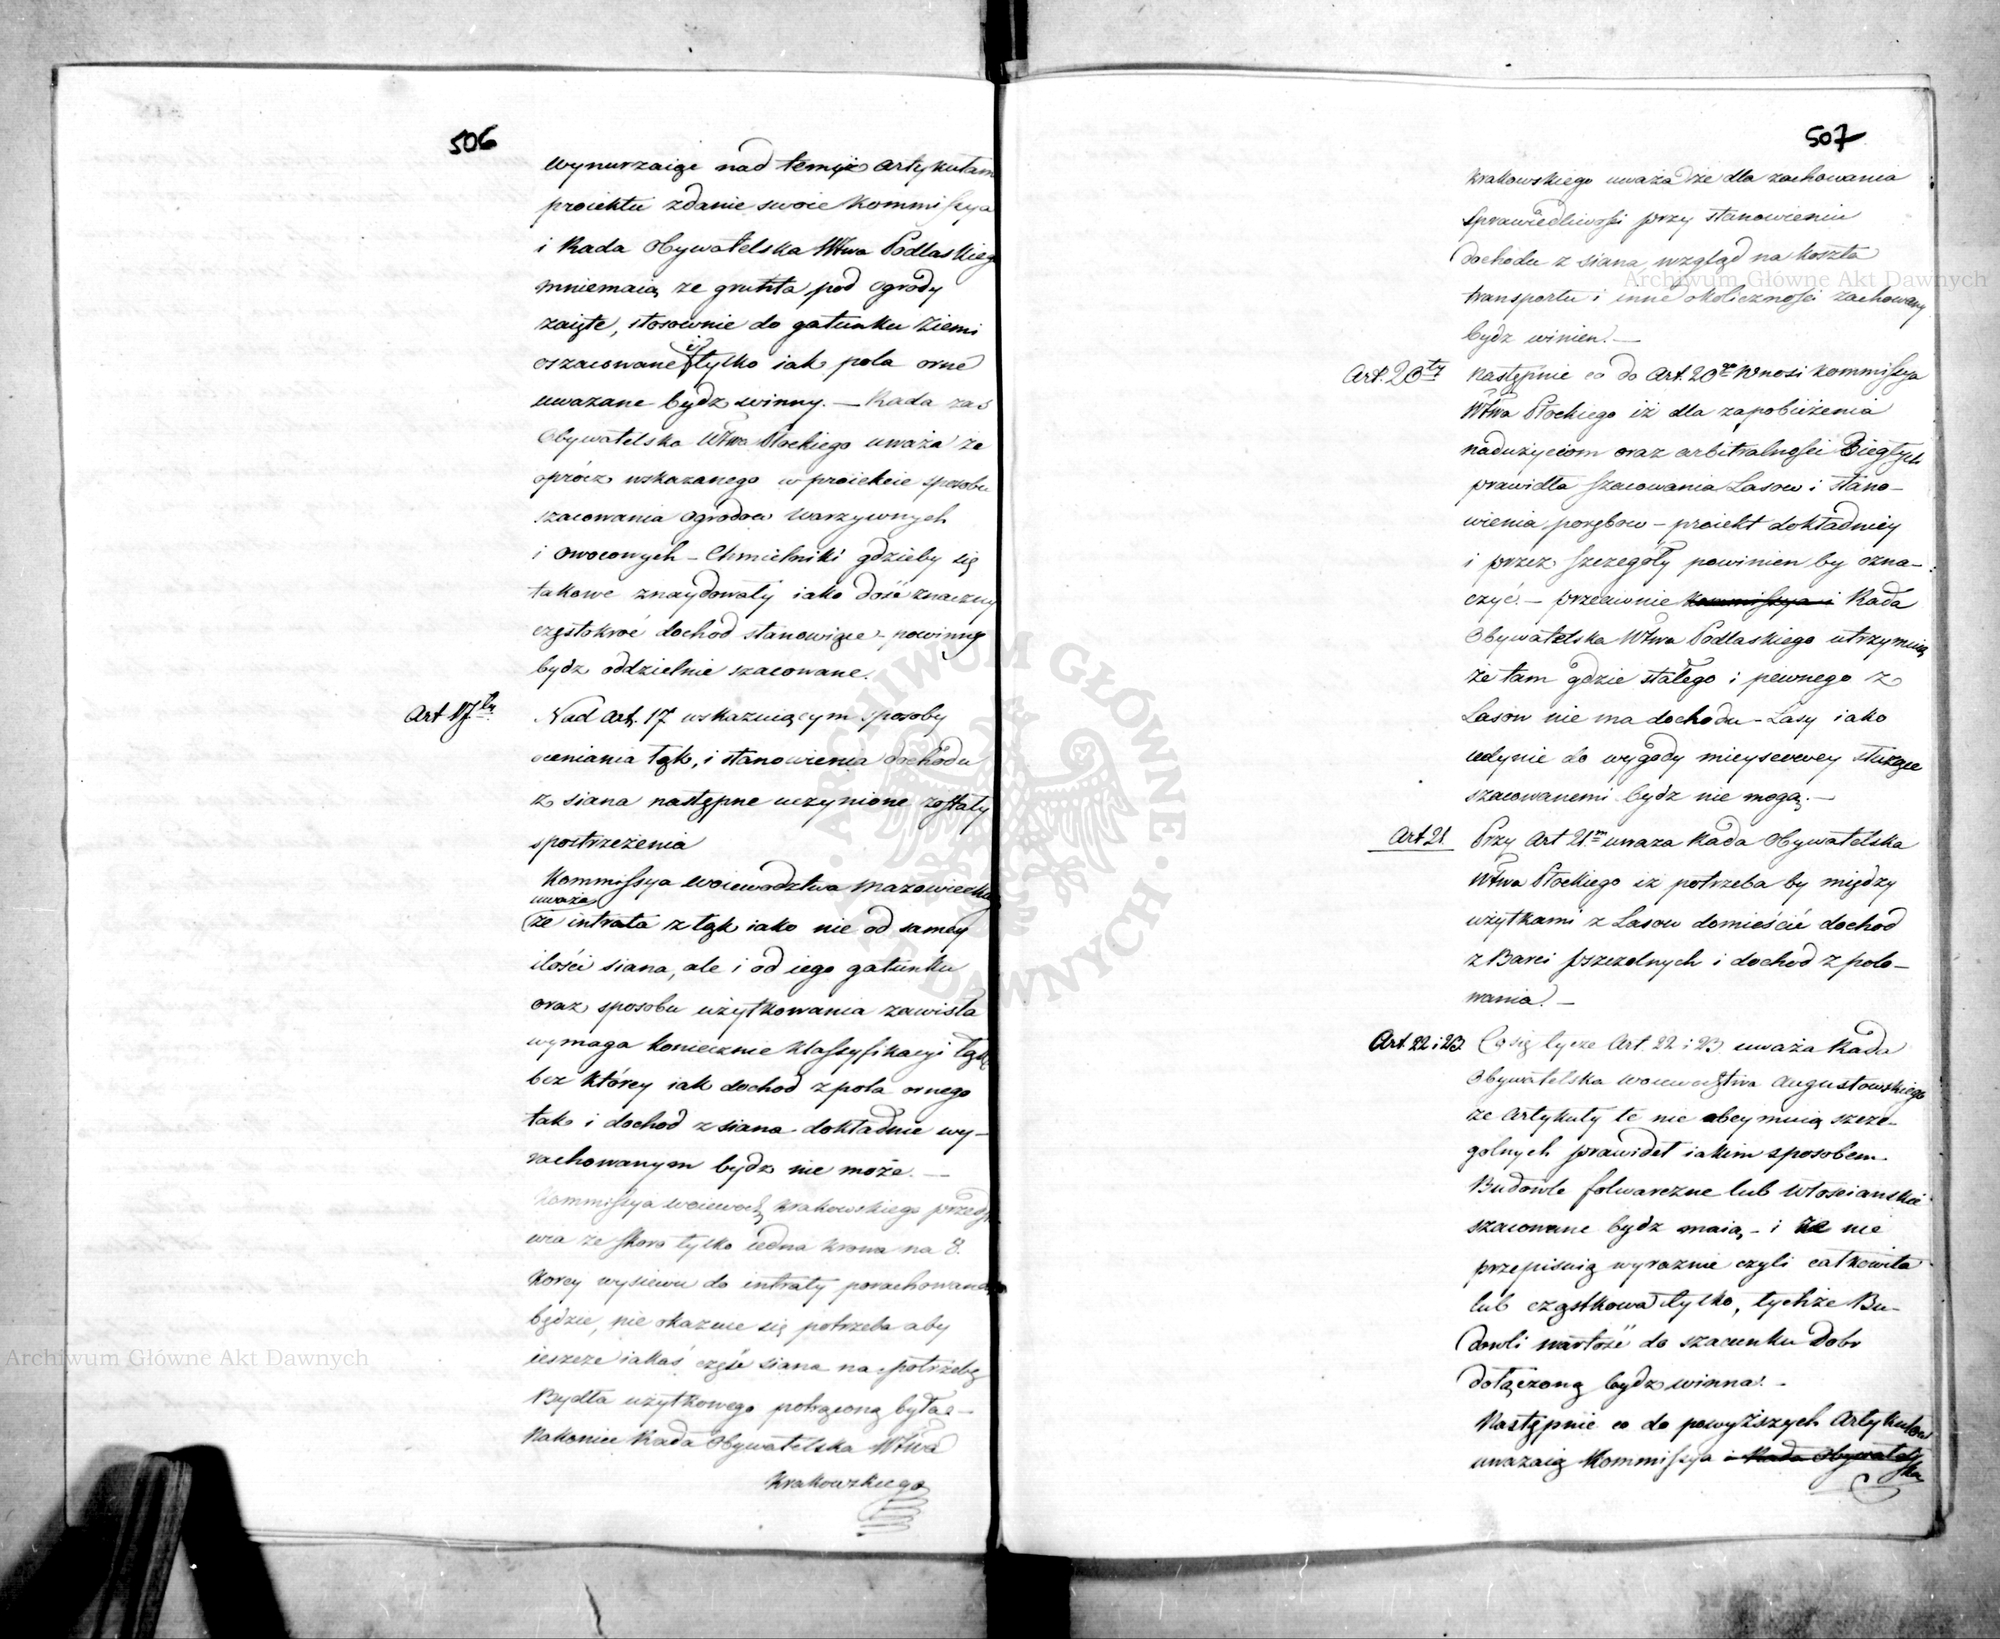 506
wynurzaiąc nad temiż Artykułam
proiektu zdanie swoie Kommissya
i Rada Obywatelska Wtwa Podlaskieg
mniemaią ze grunta pod Ogrody
zaięte, stosownie do gatunku Ziemi
oszacowane i tylko iak pola orne
uwazane bydz winny. — Rada zas
Obywatelska Wtwa Płockiego uważa że
oprócz wskazanego w proiekcie sposobu
szacowania Ogrodow Warzywnych
i Owocowych – Chmielniki gdzieby się
takowe znaydowały iako dość znaczny
częstokroć dochod stanowiące – powinny
bydz oddzielnie szacowane.
Art 17ty
Nad Art. 17 wskazuiącym sposoby
oceniania Łąk, i stanowienia dochodu
z siana następne uczynione zostały
spostrzeżenia
Kommissya Woiewodztwa Mazowieckieg
uważa
że intrata z Łąk iako nie od samey
ilości siana, ale i od iego gatunku
oraz sposobu użytkowania zawisła
wymaga koniecznie klassyfikacyi Łąk
bez którey iak dochod z pola ornego
tak i dochod z siana dokładnie wy-
rachowanym bydz nie może. —
Kommissya Woiewodz Krakowskiego
ze skoro tylko iedna krowa na 8
korcy wysiewu do intraty porachowana
będzie, nie okazuie się potrzeba aby
ieszcze iakaś część siana na potrzebę
Bydła użytkowego potrąconą była –
Nakoniec Rada Obywatelska Wtwa
Krakowskiego
507
Krakowskiego uważa że dla zachowania
Sprawiedliwości przy stanowieniu
dochodu z siana wzgląd na koszta
transportu i inne okoliczności zachowany
bydz winien. —
Art. 20ty
Następnie co do Art. 20go Wnosi Kommissya
Wtwa Płockiego iż dla zapobieżenia
nadużyciom oraz arbitralności Biegłych
prawidła szacowania Lasow i stano-
wienia porębow – proiekt dokładniey
i przez szczegóły powinien by ozna-
czyć. – przeciwnie Kommissya i Rada
Obywatelska Wtwa Podlaskiego utrzymuią
że tam gdzie stałego i pewnego z
Lasow nie ma dochodu – Lasy iako
iedynie do wygody mieyscowey służące
szacowanemi bydz nie mogą. —
Art 21.
Przy Art 21m uwaza Rada Obywatelska
Wtwa Płockiego iz potrzeba by między
użytkami z Lasow domieścić dochod
z Barci pszczolnych i dochod z polo-
wania. —
Art. 22 i 23
Co się tycze Art. 22 i 23 uważa Rada
Obywatelska Woiewodztwa Augustowskiego
ze Artykuły te nie obeymuią szcze-
golnych prawideł iakim sposobem
Budowle folwarczne lub Włościanskie
szacowane bydz maią – i ze nie
przepisuią wyraznie czyli całkowita
lub cząstkowa tylko, tychże Bu-
dowli wartość do szacunku Dobr
dołączoną bydz winna. –
Następnie co do powyższych Artykułow
uwazaią Kommissya i Rada Obywatel
ska
Archiwum Główne Akt Dawnych
Archiwum Główne Akt Dawnych
ARCHIWUM GŁÓWNE AKT DAWNYCH